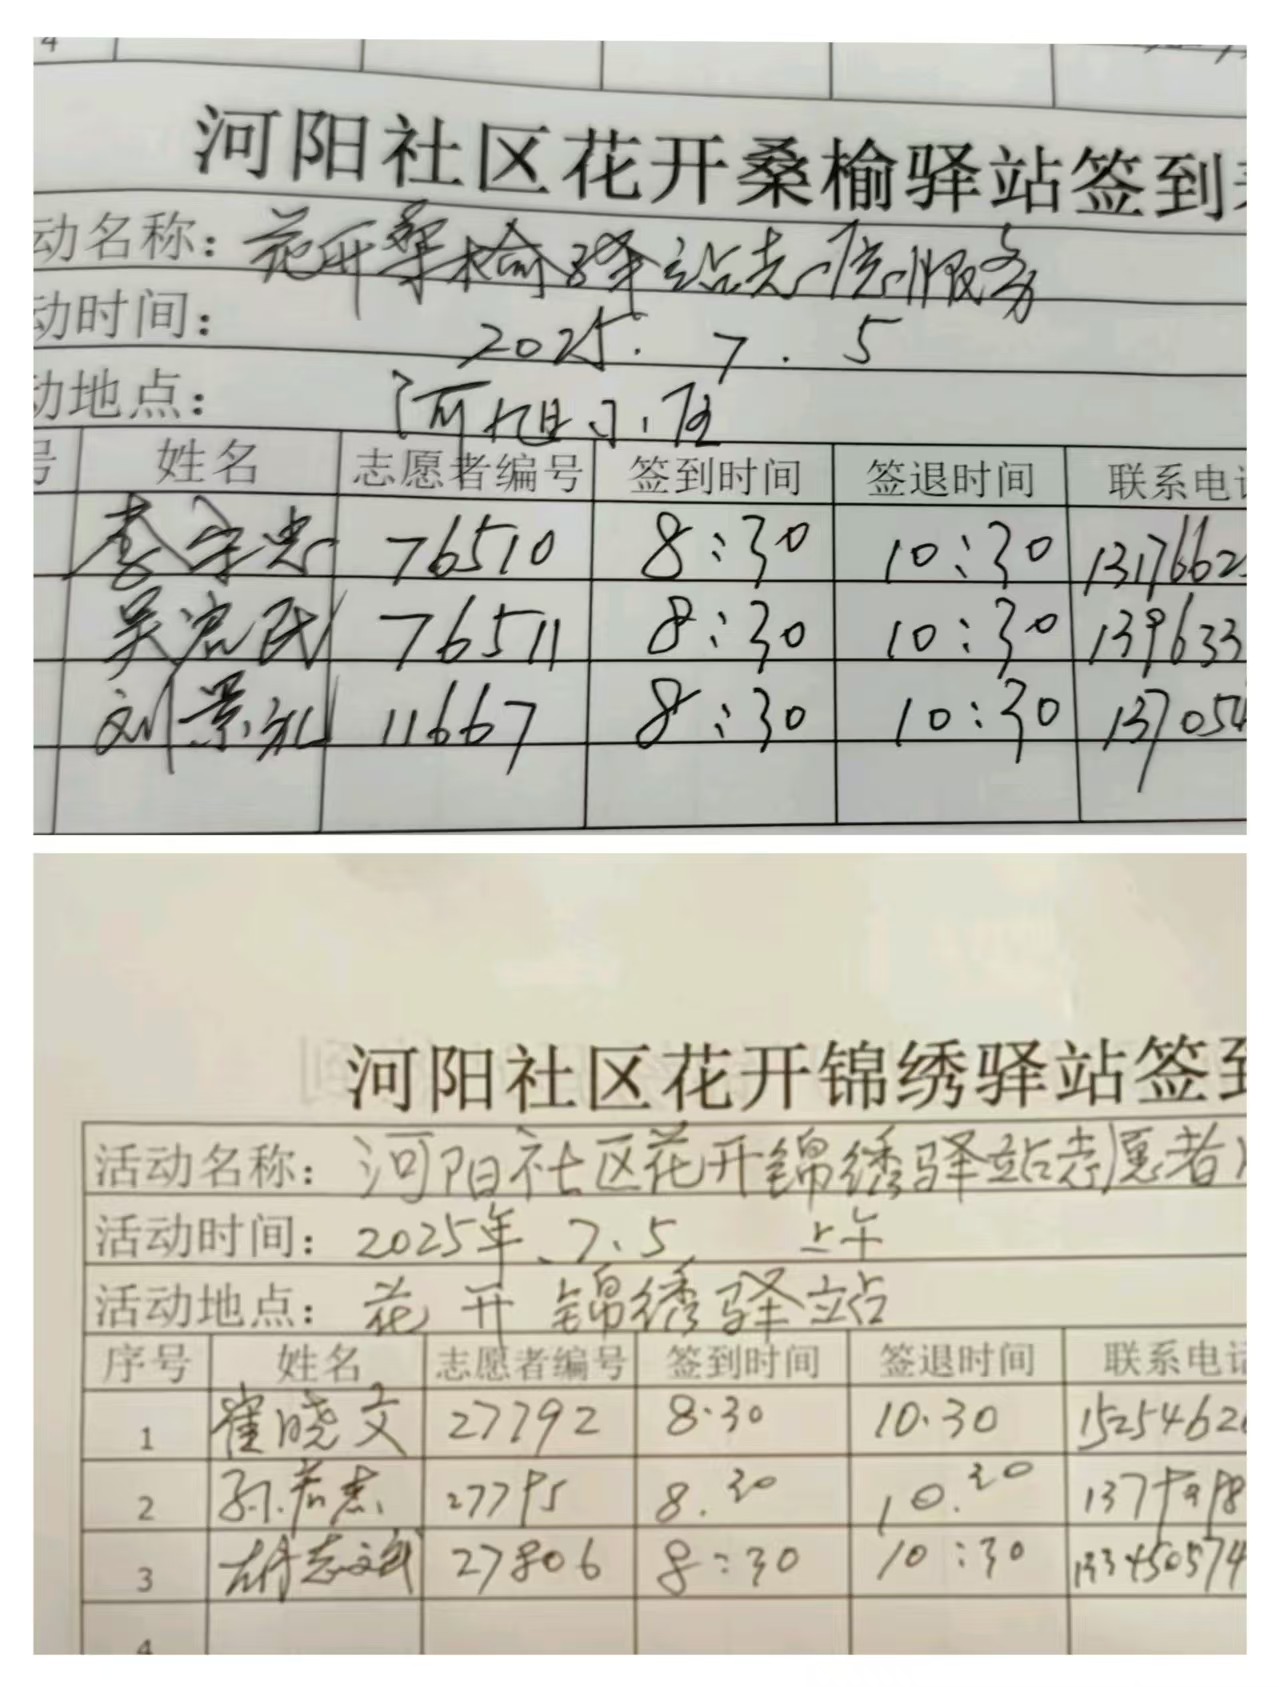 4
河阳社区花开桑榆驿站签到
动名称: 花开桑榆驿站志愿服务
动时间: 2025. 7. 5
动地点: 河旭小区
号 姓名 志愿者编号 签到时间 签退时间 联系电话
李守忠 76510 8:30 10:30 1317662
吴宏民 76511 8:30 10:30 139633
刘景礼 11667 8:30 10:30 137054
河阳社区花开锦绣驿站签到
活动名称: 河阳社区花开锦绣驿站志愿者
活动时间: 2025年、7、5 上午
活动地点: 花开锦绣驿站
序号 姓名 志愿者编号 签到时间 签退时间 联系电话
1 崔晓文 27792 8·30 10·30 1525462
2 8.30 10.30
3 胡志斌 27806 8:30 10:30
4